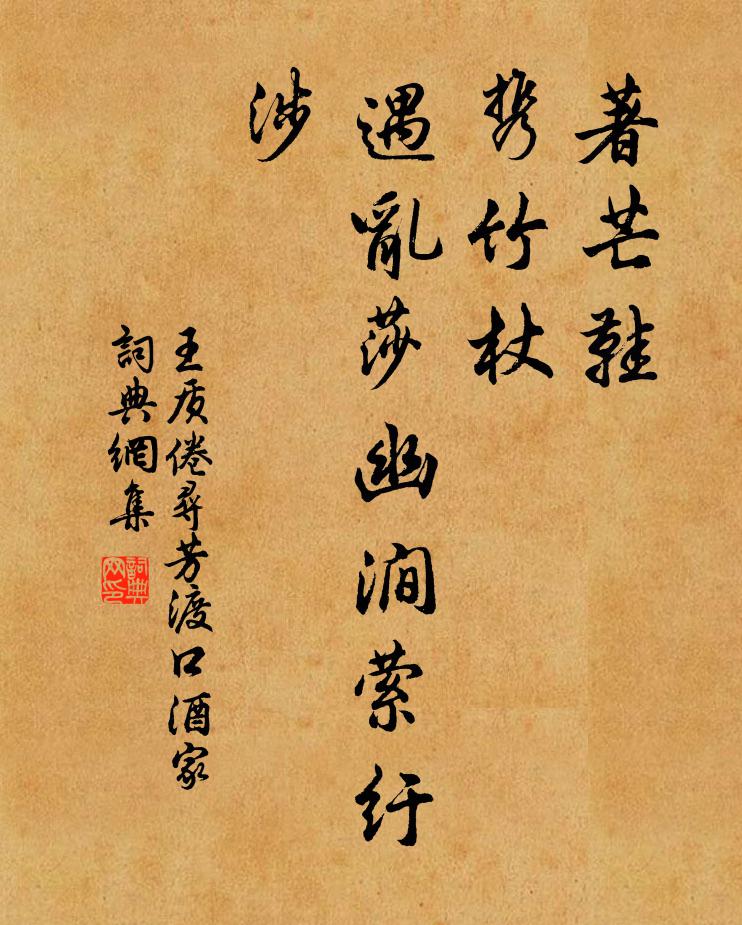 著芒鞋
携竹杖
遇亂莎幽澗萦纡
涉
王质倦尋芳渡口酒家
詞典網集
詞典网印